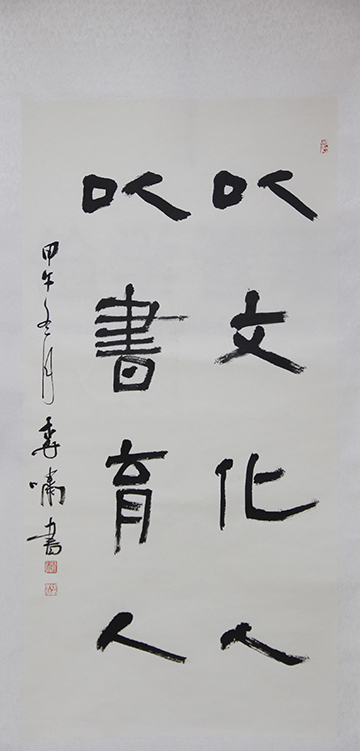 以文化人
以書育人
甲午冬月 嘯書